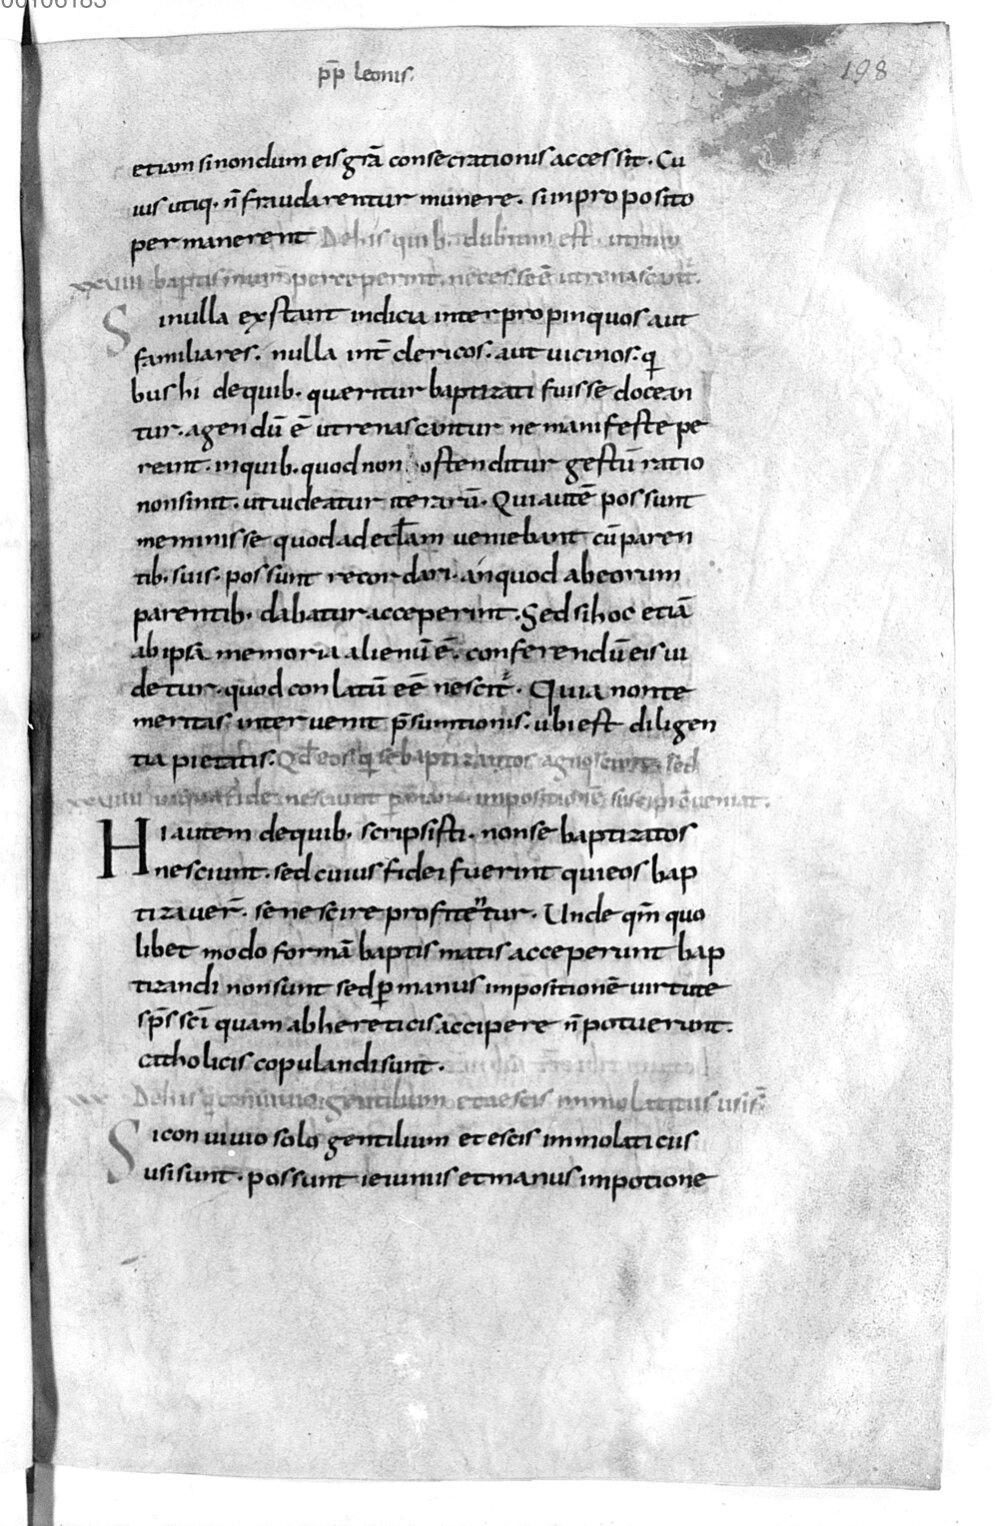 00106183
pp̄ leonis.
198
etiam si nondum eis grā consecrationis accessit. Cu
ius utiq. n̄ fraudarentur munere. si in proposito
permanerent De his quib. dubium est. utrum
xxviiii baptismum perceperint. necesse ē ut renascant̄.
Si nulla exstant indicia inter propinquos aut
familiares. nulla int̄ clericos. aut uicinos. q
bus hi de quib. queritur baptizati fuisse docean
tur. agendū ē ut renascantur ne manifeste pe
reant. in quib. quod non ostenditur gestū ratio
non sinit. ut uideatur iterarū. Qui autē possunt
meminisse quod ad eccl̄am ueniebant cū paren
tib. suis. possunt recordari. an quod ab eorum
parentib. dabatur acceperint. Sed si hoc etiā
ab ipsā memoria alienū ē. conferendū eis ui
detur. quod conlatū eē nescit̄. Quia non te
meritas interuenit p̄sumtionis. ubi est diligen
tia pietatis. Qd̄ eos q se baptizatos agnoscunt sed
nesciunt impositionē
Hi autem de quib. scripsisti. non se baptizatos
nesciunt. sed cuius fidei fuerint qui eos bap
tizauer̄. se nescire profitentur. Unde qm̄ quo
libet modo formā baptismatis acceperunt bap
tizandi non sunt sed ꝑ manus impositionē uirtute
sp̄s sc̄i quam ab hereticis accipere n̄ potuerunt.
catholicis copulandi sunt.
xxx De his q conuiuio gentilium et aescis immolatitiis usis̄.
Si conuiuio solo gentilium et escis immolaticus
usi sunt. possunt ieiuniis et manus impotione